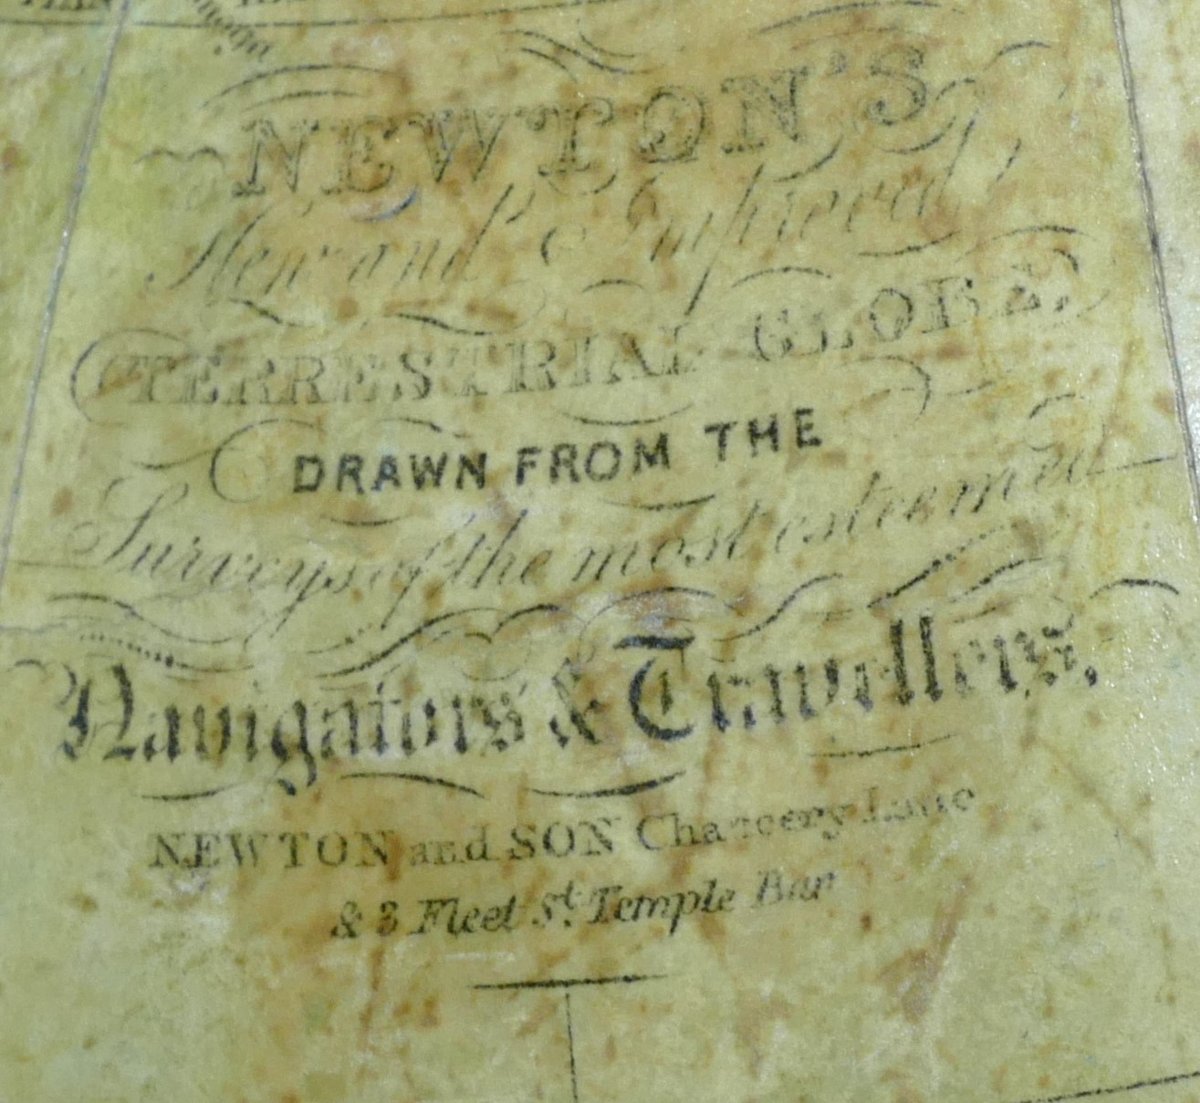 NEWTON'S
New and Improved
TERRESTRIAL GLOBE,
DRAWN FROM THE
Surveys of the most esteemed
Navigators & Travellers,
NEWTON and SON Chancery Lane
& 3 Fleet St. Temple Bar